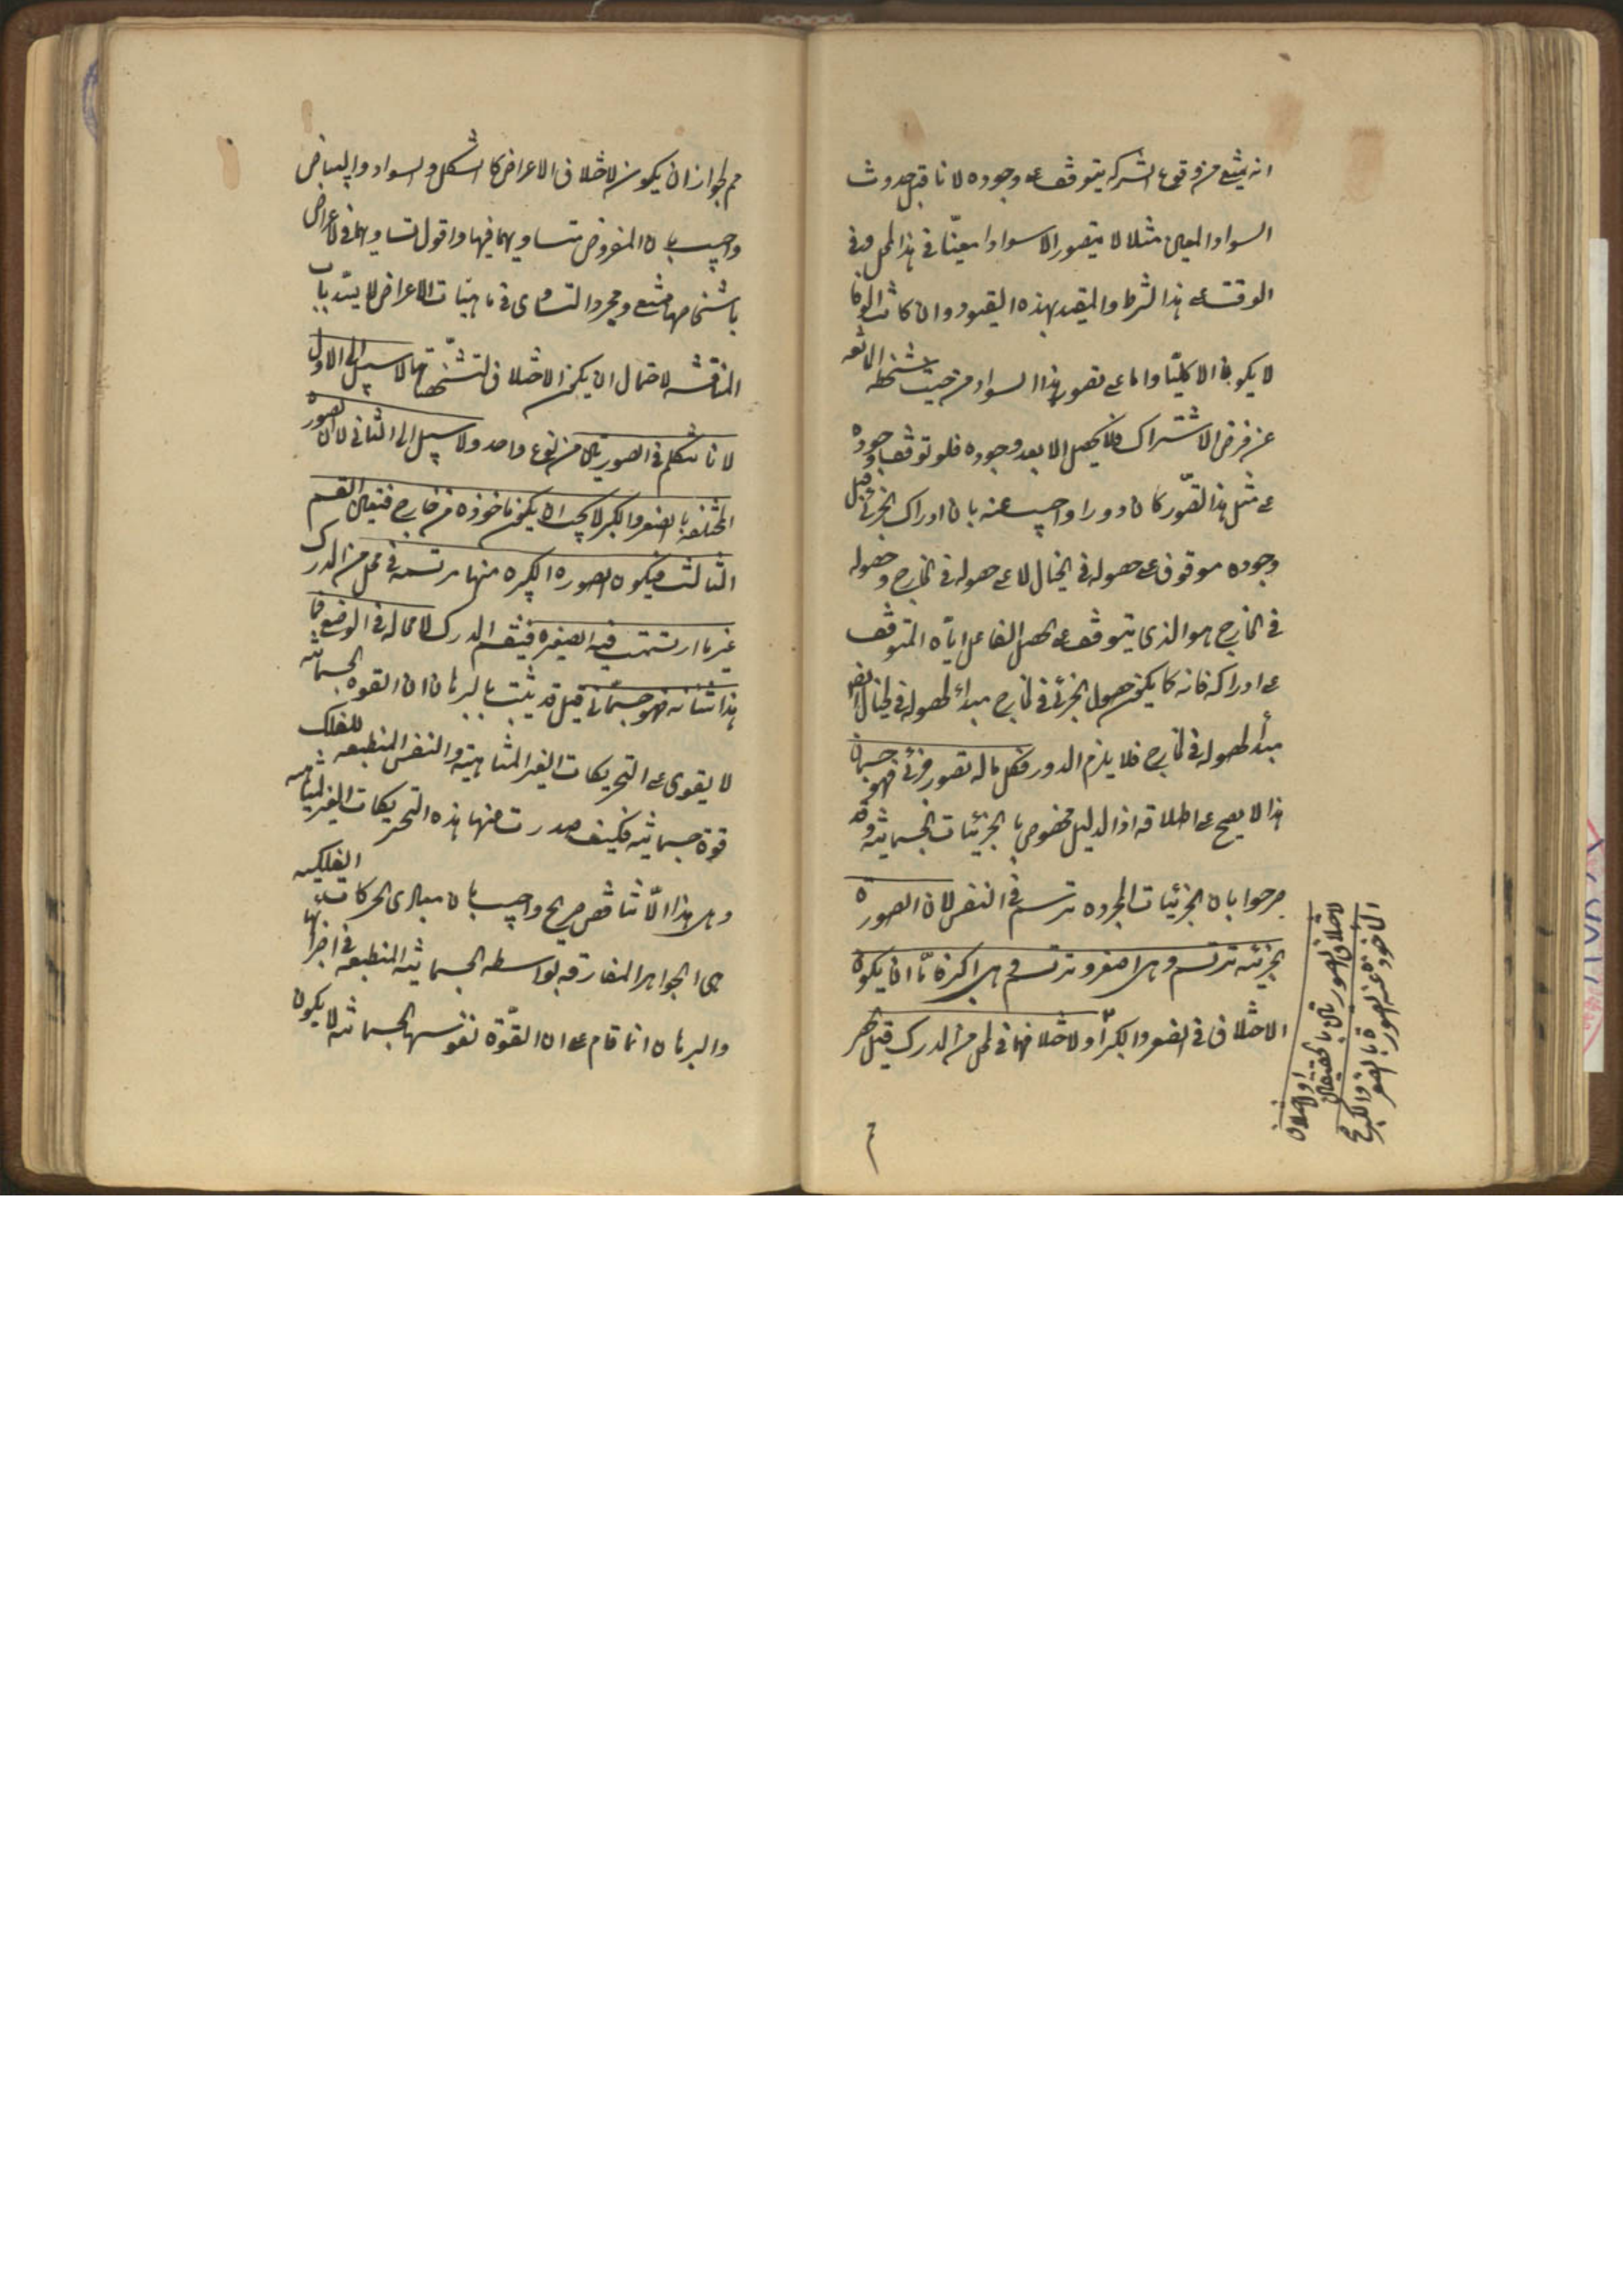 انه يمتنع من وقوع الشركه يتوقف على وجوده لانا قبل حدوث
السواد المعين مثلا لا يتصور الا سوادا معينا فى هذا المحل وفى
الوقت على هذا الشرط والمقيد بهذه القيود وان كانت الوفا
لا يكون الا كليا واما على تصور هذا السواد من حيث تشخصه المانعه
عن فرض الاشتراك فلا يحصل الا بعد وجوده فلو توقف وجوده
على مثل هذا التصور كان دورا واجيب عنه بان ادراك الجزئى قبل
وجوده موقوف على حصوله فى الخيال لا على حصوله فى الخارج وحصوله
فى الخارج هو الذى يتوقف على تحصيل الفاعل اياه المتوقف
على ادراكه فانه كما يكون حصول الجزئى فى الخارج مبدأ لحصوله فى الخيال
مبدأ لحصوله فى الخارج فلا يلزم الدور فكل ما له تصور جزئى فهو جسمانى
هذا لا يصح على اطلاقه اذ الدليل مخصوص بالجزئيات الجسمانيه وقد
صرحوا بان الجزئيات المجرده ترتسم فى النفس لان الصورة
الجزئيه ترتسم وهى اصغر وترتسم وهى اكبر فاما ان يكون
الاختلاف فى الصغر والكبر او لاختلافهما فى المحل من المدرك قيل الحصر
لاختلاف الصورتين بالحقيقه او لاختلاف
المأخوذ عنه الصورة بالصغر والكبر
مم لجواز ان يكون لاختلاف الاعراض كالشكل والسواد والبياض
واجيب بان المفروض تساويهما فيها واقول تساويهما فى الاعراض
باشخاصها ممتنع ومجرد التساوى فى ماهيات الاعراض لا يسد باب
المناقشه لاحتمال ان يكون الاختلاف لتشخصاتها لا سبيل الى الاول
لانا نتكلم فى الصورتين من نوع واحد ولا سبيل الى الثانى لان الصوره
المختلفه بالصغر والكبر لا يجب ان يكون مأخوذه من خارج فتعين القسم
الثالث فيكون الصوره الكبيره منها مرتسمه فى محل من المدرك
غير ما ارتسمت فيه الصغيره فينقسم المدرك لا محاله فى الوضع فما
هذا شانه فهو جسمانى قيل قد ثبت بالبرهان ان القوه الجسمانيه
لا يقوى على التحريكات الغير المتناهيه والنفس المنطبعه للفلك
قوة جسمانيه فكيف صدرت منها هذه التحريكات الغير المتناهيه
وهل هذا الا تناقض صريح واجيب بان مبادى الحركات الفلكيه
هى الجواهر المفارقه بواسطه الجسمانيه المنطبعه فى اجرامها
والبرهان انما قام على ان القوة نفوسها الجسمانيه لا يكون